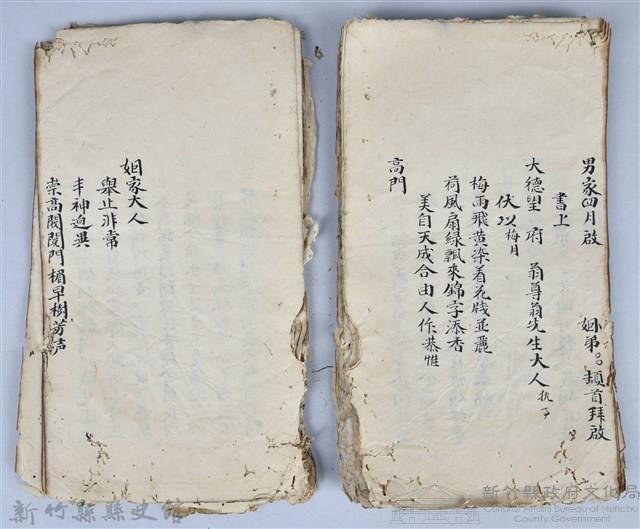 男家四月啟 姻弟○○頓首拜啟
書上
大德望 府 翁尊翁先生大人 執事
伏以梅月
梅雨飛黃染着花牋並麗
荷風扇綠飄來錦字添香
美自天成合由人作恭惟
高門
姻家大人
舉止非常
丰神逈異
崇高閥閱門楣早樹芳声
新竹縣縣史館
新竹縣政府文化局
Cultural Affairs Bureau of Hsinchu
County Government